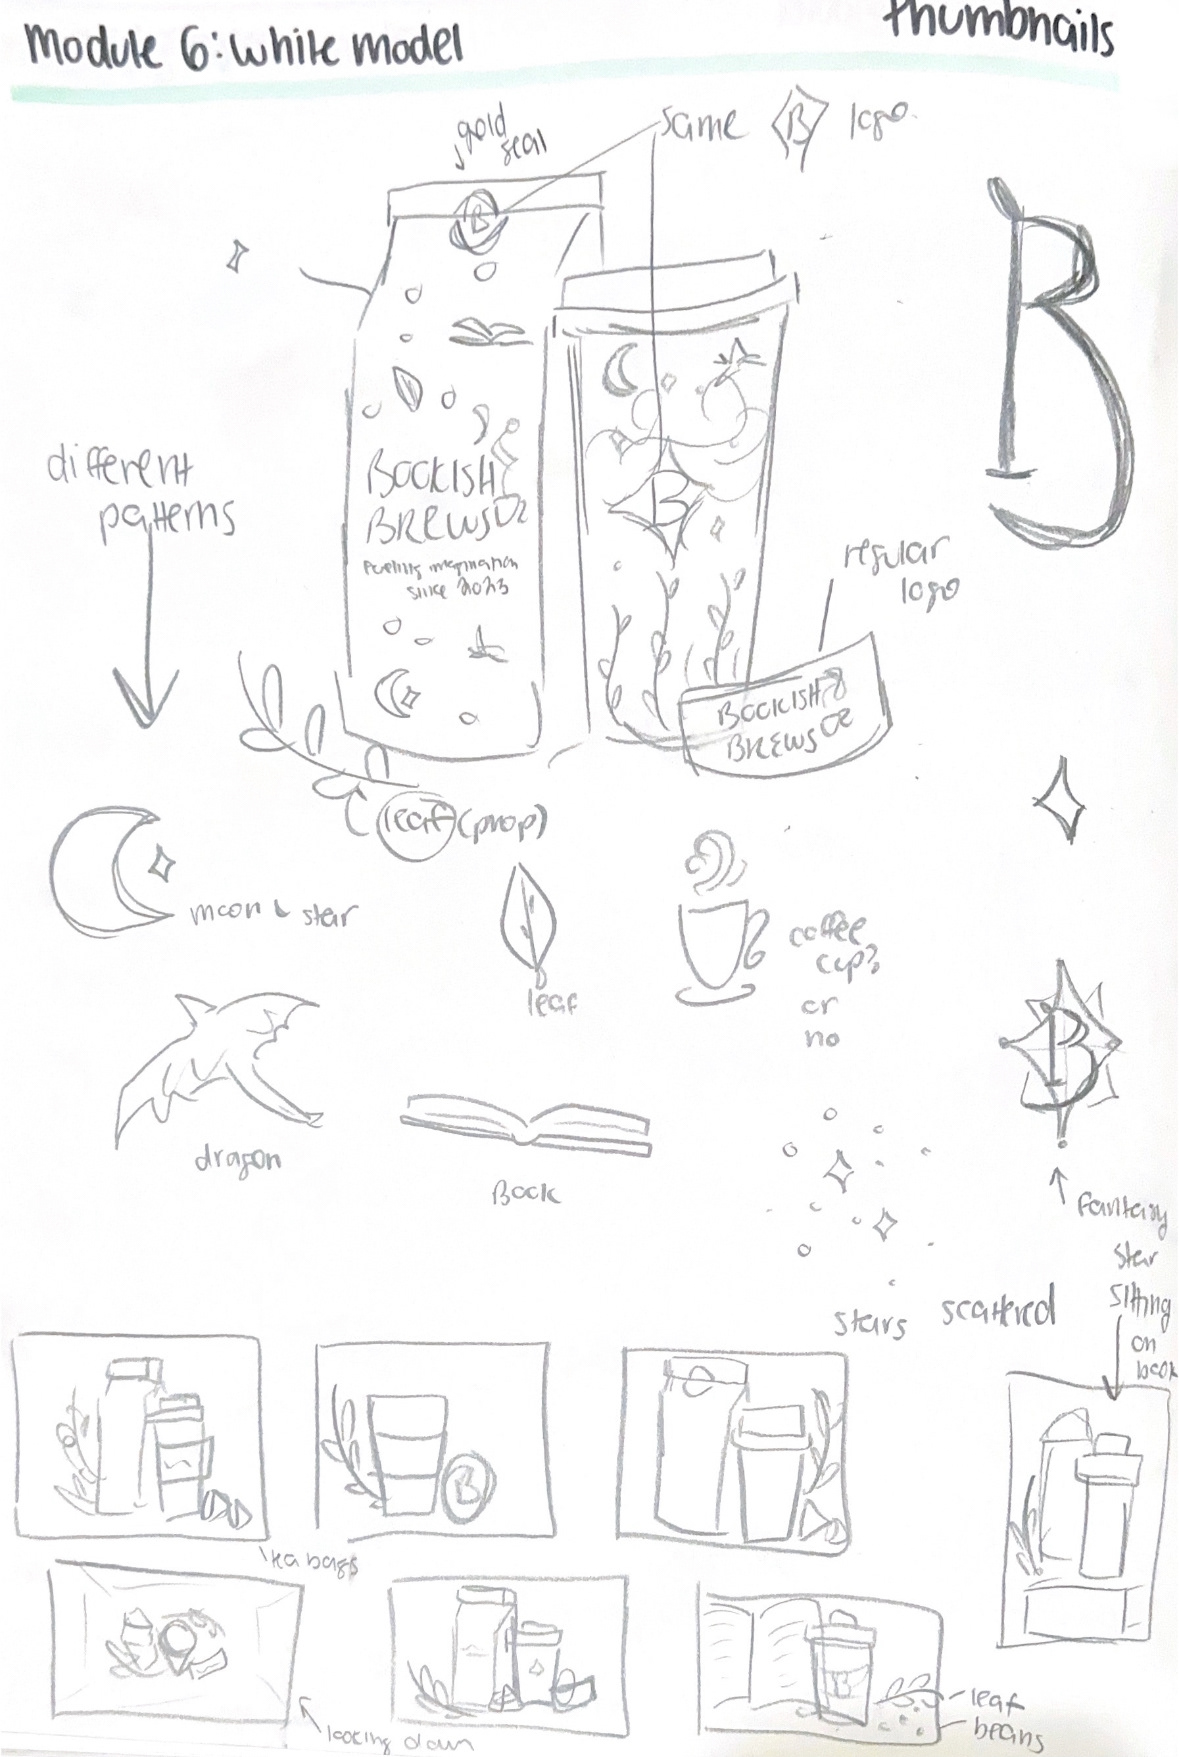 Module 6: white model
thumbnails
gold
seal
same B logo.
B
B
different
patterns
BOOKISH
BREWS
fueling imagination
since 2023
B
regular
logo
BOOKISH
BREWS
leaf (prop)
moon & star
leaf
coffee
cup?
or
no
B
dragon
Book
fantasy
star
stars scattered
sitting
on
book
B
tea bags
B
looking down
leaf
beans